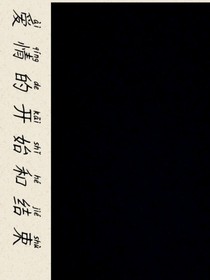 ài qíng de kāi shǐ hé jié shù
爱情的开始和结束